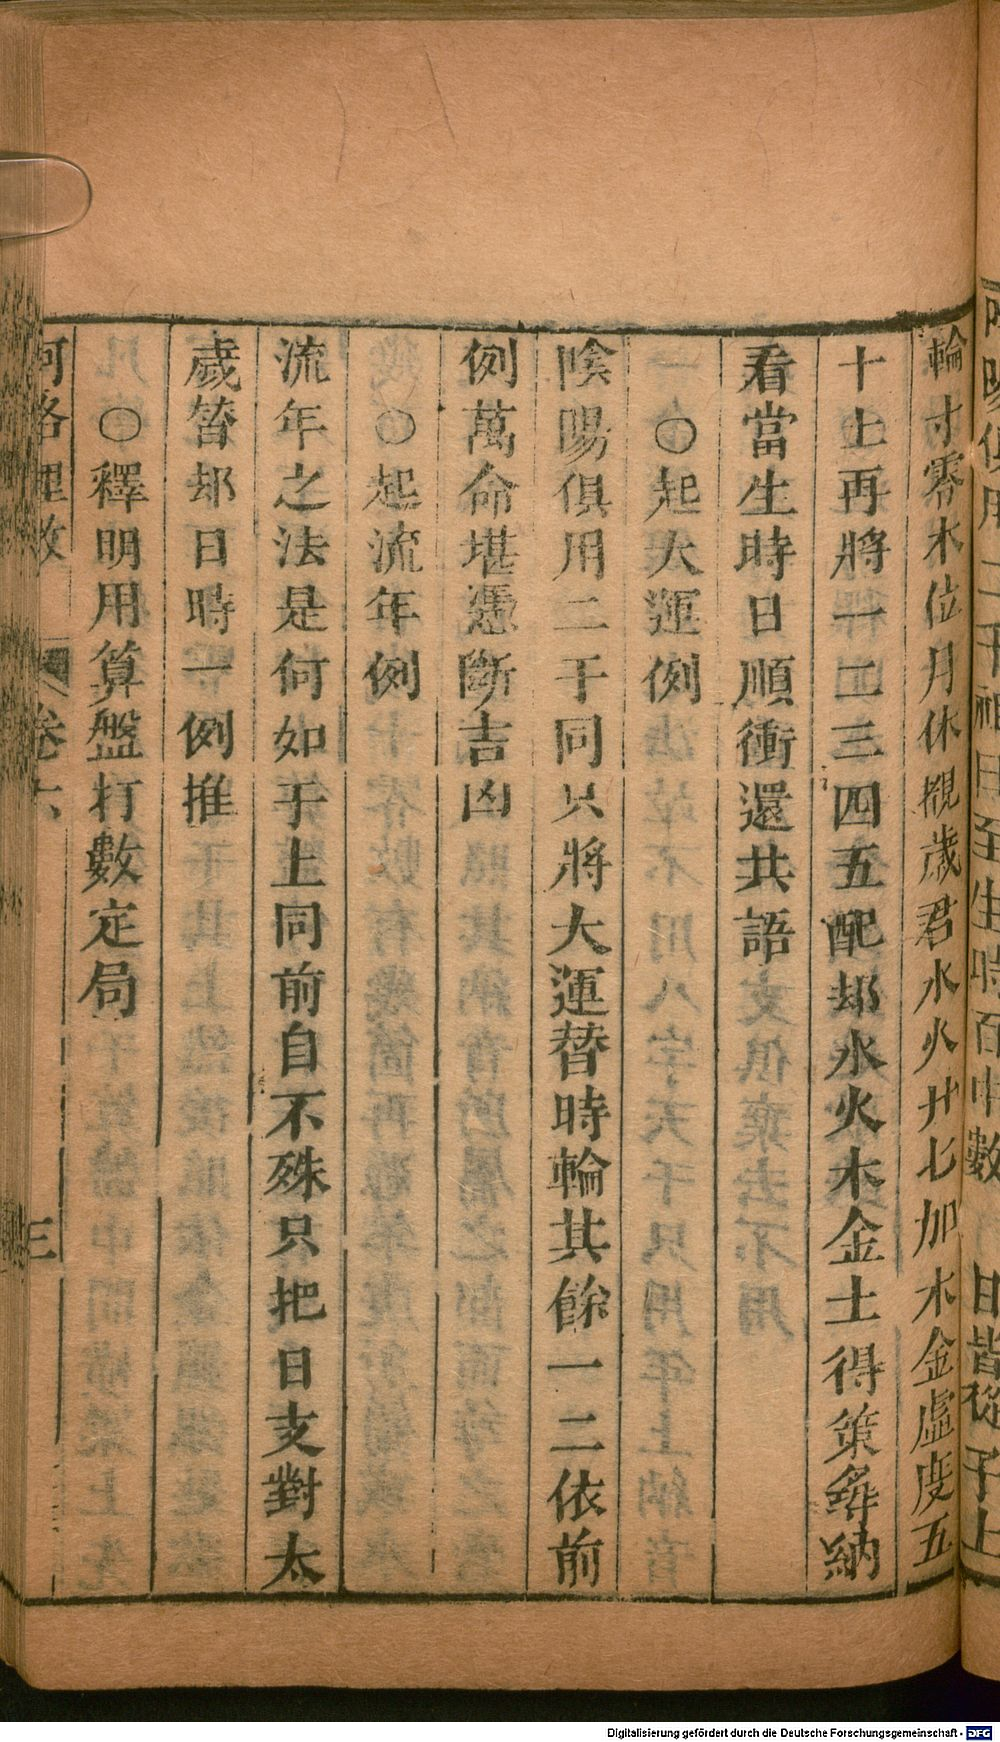 輪寸零木位月休覩歲君水火廿七加木金虛度五
十上再將一二三四五配却水火木金土得策粦納
看當生時日順衝還共語
○起大運例
陰陽俱用二干同只將大運替時輪其餘一二依前
例萬命堪憑斷吉凶
○起流年例
流年之法是何如手上同前自不殊只把日支對太
歲替却日時一例推
○釋明用算盤打數定局
河洛理數 卷六 三
Digitalisierung gefördert durch die Deutsche Forschungsgemeinschaft - DFG